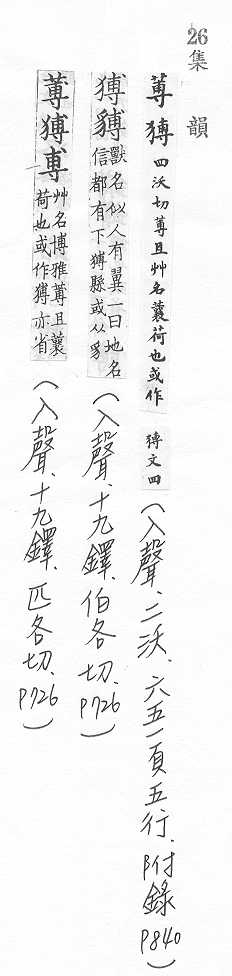 26
集韻
蒪 猼 四沃切蒪且艸名蘘荷也或作 猼文四（入聲、二沃、六五一頁五行、附錄P840）
猼 獸名似人有翼一曰地名
信都有下猼縣或从豸
（入聲、十九鐸、伯各切、P726）
蒪猼尃 艸名博雅蒪且蘘
荷也或作猼亦省
（入聲、十九鐸、匹各切、P726）